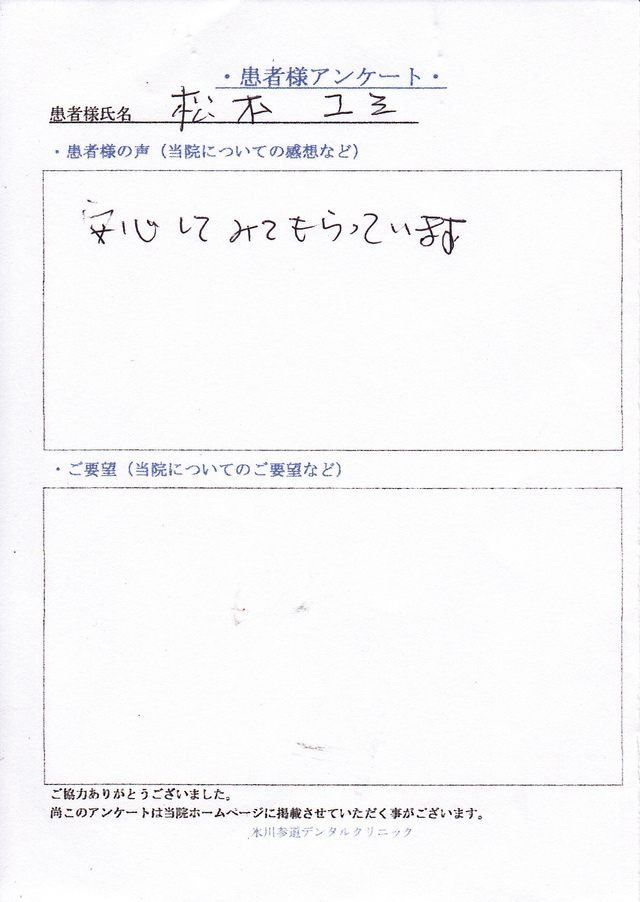 ・患者様アンケート・
患者様氏名 松本 ユミ
・患者様の声（当院についての感想など）
安心してみてもらっています
・ご要望（当院についてのご要望など）
ご協力ありがとうございました。
尚このアンケートは当院ホームページに掲載させていただく事がございます。
氷川参道デンタルクリニック